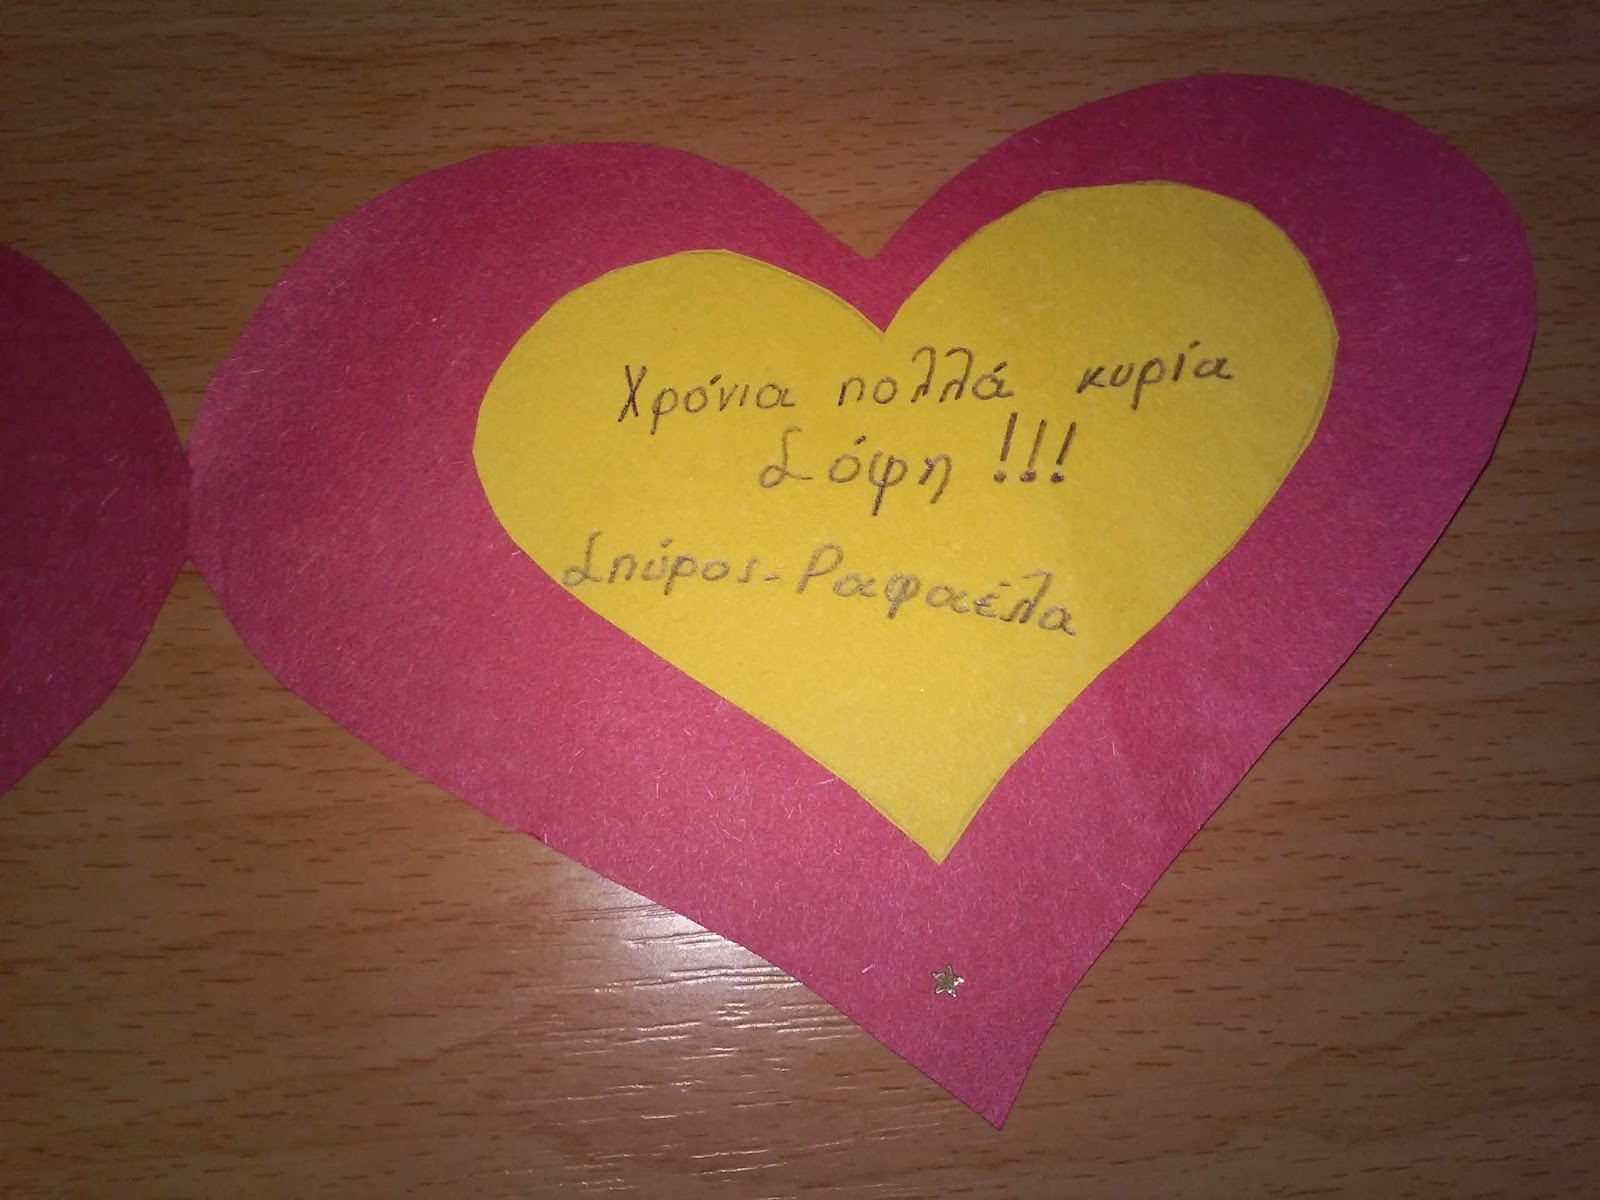 Χρόνια πολλά κυρία
Σόφη !!!
Σπύρος-Ραφαέλα